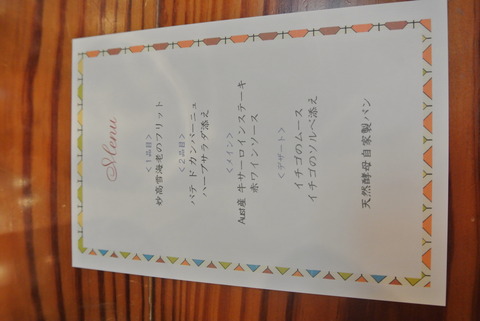 Menu
<1品目>
妙高雪海老のフリット
<2品目>
パテ ド カンパーニュ
ハーブサラダ添え
<メイン>
Aust産 牛サーロインステーキ
赤ワインソース
<デザート>
イチゴのムース
イチゴのソルベ添え
天然酵母自家製パン